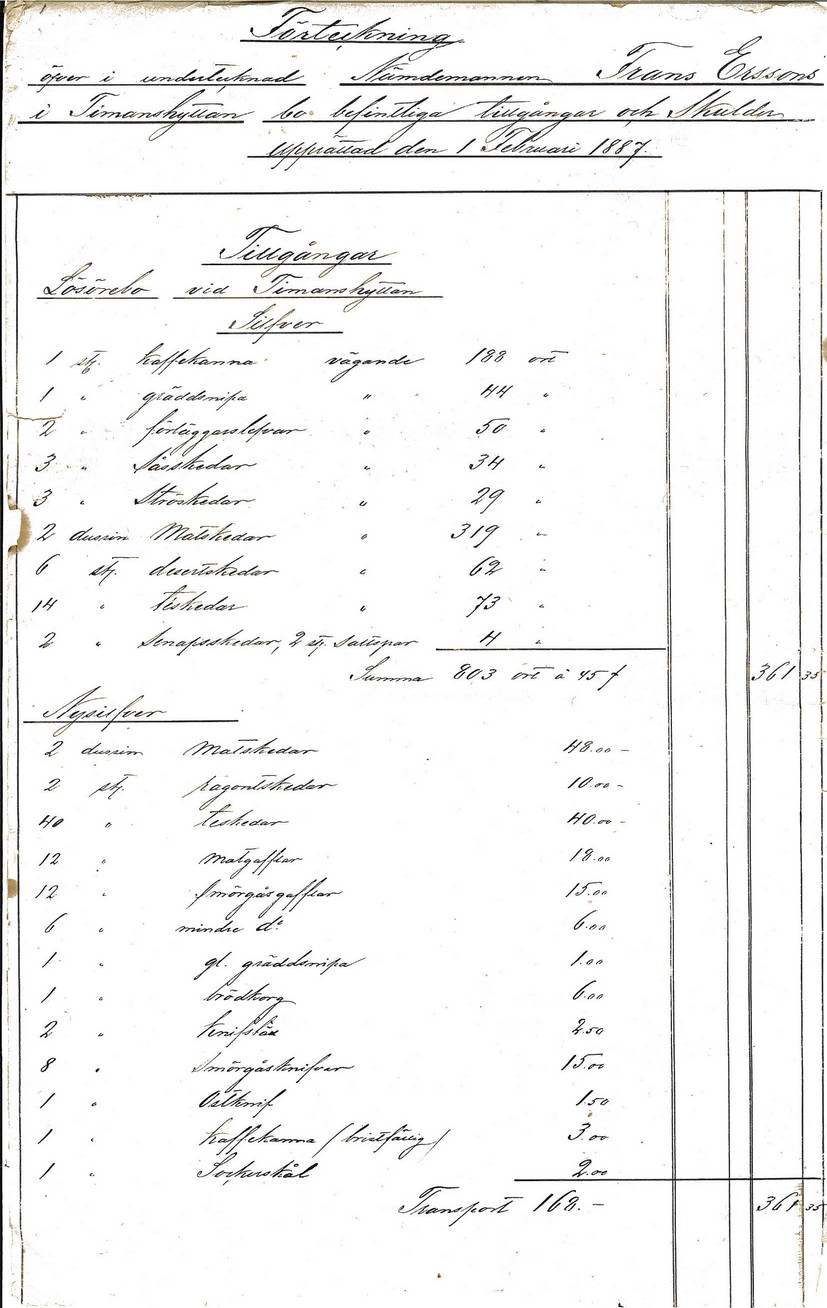 Förteckning
öfver i undertecknad Nämdemannen Frans Erssons
i Timanshyttan bo befintliga tillgångar och Skulder
upprättad den 1 Februari 1887.
Tillgångar
Lösörebo vid Timanshyttan
Silfver
1 st. kaffekanna vägande 188 ort
1 " gräddsnipa " 44 "
2 " förläggarslefvar " 50 "
3 " Såsskedar " 34 "
3 " Ströskedar " 29 "
2 dussin Matskedar " 319 "
6 st. desertskedar " 62 "
14 " teskedar " 73 "
2 " Senapsskedar, 2 st. Saltspar 4 "
Summa 803 ort à 45 f 361 35
Nysilfver
2 dussin Matskedar 48.00 -
2 st. ragoutskedar 10.00 -
40 " teskedar 40.00 -
12 " matgafflar 18.00
12 " smörgåsgafflar 15.00
6 " mindre do 6.00
1 " gl. gräddsnipa 1.00
1 " brödkorg 6.00
2 " 2.50
8 " Smörgåsknifvar 15.00
1 " Ostknif 1.50
1 " kaffekanna (bristfällig) 3.00
1 " Sockerskål 2.00
Transport 168.- 361 35